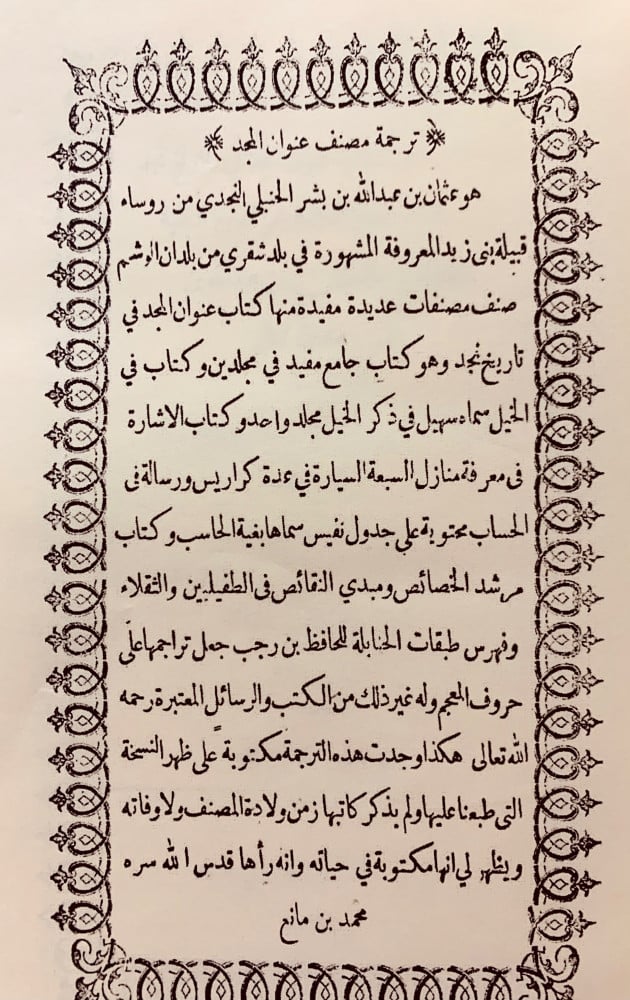 ترجمة مصنف عنوان المجد
هو عثمان بن عبدالله بن بشر الحنبلي النجدي من روساء
قبيلة بنى زيد المعروفة المشهورة في بلد شقري من بلدان الوشم
صنف مصنفات عديدة مفيدة منها كتاب عنوان المجد في
تاريخ نجد وهو كتاب جامع مفيد في مجلدين وكتاب في
الخيل سماه سهيل في ذكر الخيل مجلد واحد وكتاب الاشارة
فى معرفة منازل السبعة السيارة في عدة كراريس ورسالة فى
الحساب محتوية على جدول نفيس سماها بغية الحاسب وكتاب
مرشد الخصائص ومبدي النقائص فى الطفيليين والثقلاء
وفهرس طبقات الحنابلة للحافظ بن رجب جعل تراجمها على
حروف المعجم وله غير ذلك من الكتب والرسائل المعتبرة رحمه
الله تعالى هكذا وجدت هذه الترجمة مكتوبة على ظهر النسخة
التى طبعنا عليها ولم يذكر كاتبها زمن ولادة المصنف ولا وفاته
ويظهر لي انها مكتوبة في حياته وانه رأها قدس الله سره
محمد بن مانع